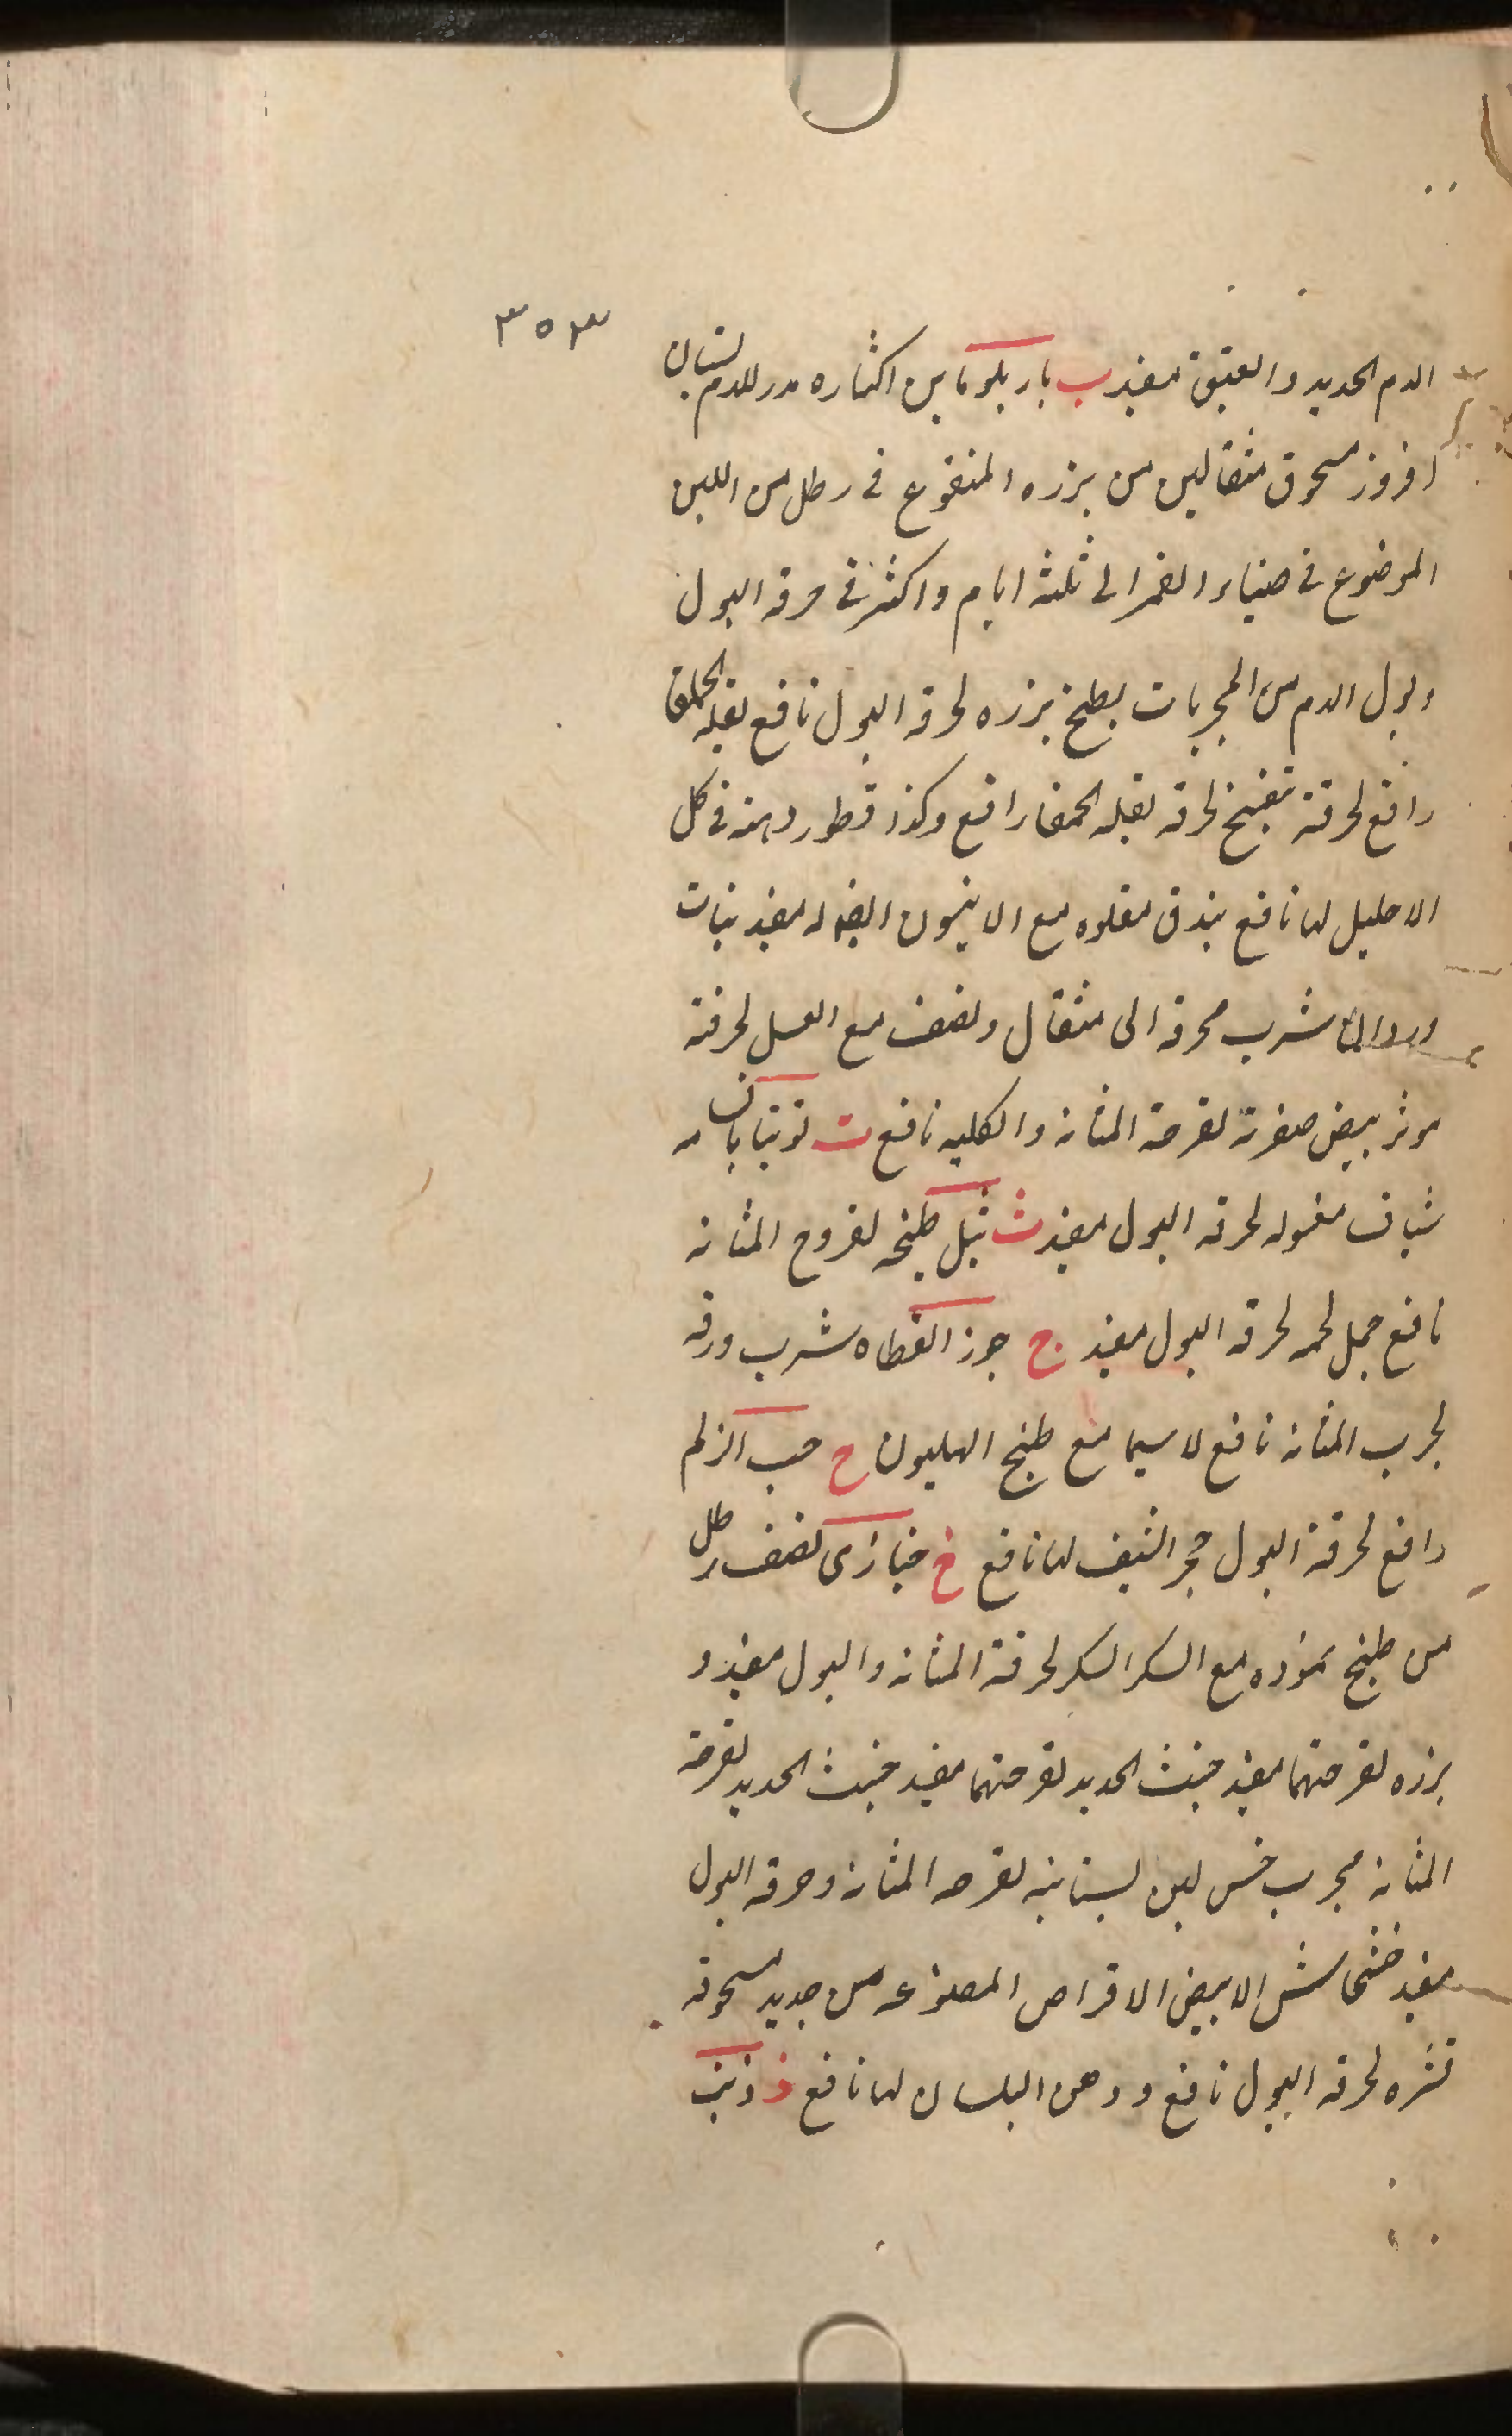 ٣٥٣
الدم الحديد والعتيق مفيد ب باريلوماين اكثاره مدر للدم بستان
افروز مسحوق مثقالين من بزره المنقوع فى رطل من اللبن
الموضوع فى ضياء القمر الى ثلثه ايام واكثر فى حرقه البول
وبول الدم من المجربات بطيخ بزره لحرقه البول نافع بقله الحمقا
رافع لحرقة بنفسج لحرقه بقله الحمقا رافع وكذا قطور دهنه فى كل
الاحليل لها نافع بندق مقلوه مع الانيسون ايضا له مفيد بنات
وردان شرب محرقه الى مثقال ونصف مع العسل لحرقته
موثر بيض صفرته لقرحة المثانه والكليه نافع ت توتيا بان مه
شياف مغسوله لحرقه البول مفيد ث ثيل طبيخه لقروح المثانه
نافع جمل لحمه لحرقه البول مفيد ج جوز القطاه شرب ورقه
لجرب المثانه نافع لاسيما مع طبخ الهليون ح حب الزلم
رافع لحرقة البول حجر القيف لها نافع خ خبازى نصف رطل
من طبخ مع السكر السكر لحرقة المثانه والبول مفيد و
بزره لقرحتهما مفيد خبث الحديد لقرحتهما مفيد خبث الحديد لقرحة
المثانه مجرب خس لبن بستانيه لقرحه المثانه وحرقه البول
مفيد خشخاش الابيض الاقراص المصنوعه من جديد مسحوقه
قشره لحرقه البول نافع د دهن البلسان لها نافع ذ ذنب